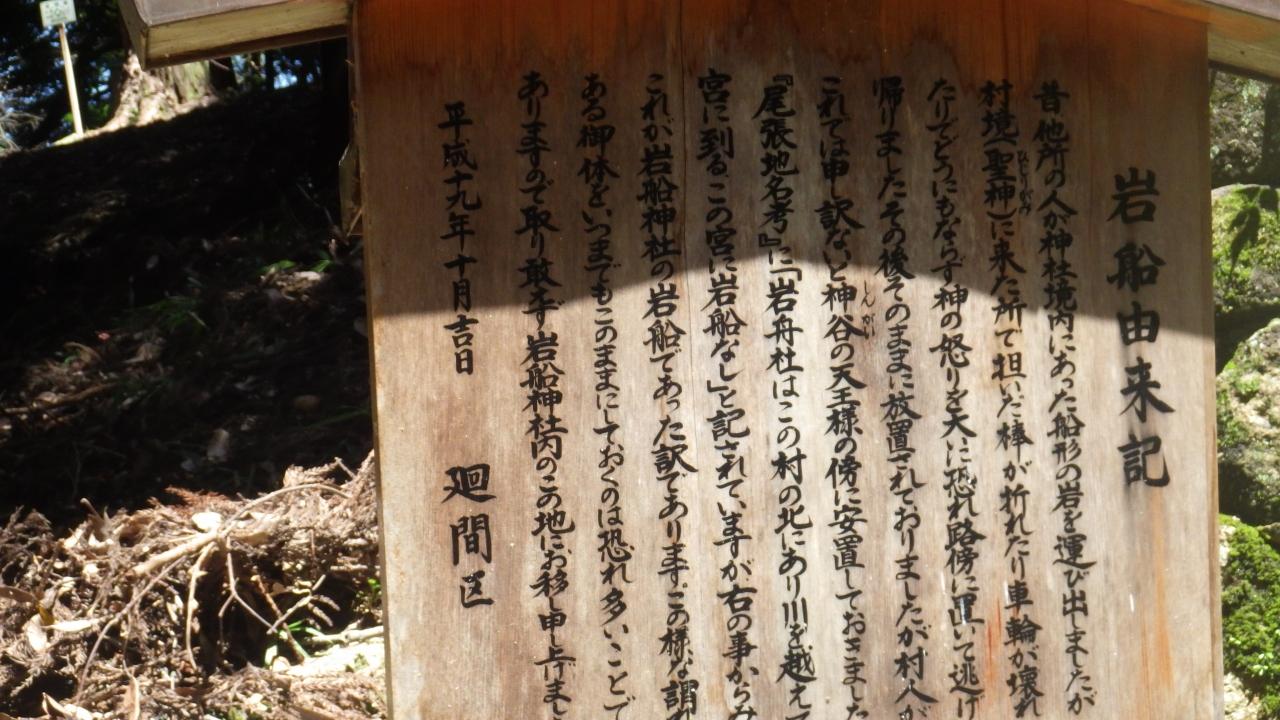 岩船由来記
昔他所の人が神社境内にあった船形の岩を運び出しましたが
村境(聖神)に来た所で担いだ棒が折れたり車輪が壊れ
たりでどうにもならず神の怒りを大に恐れ路傍に置いて逃げ
帰りましたその後そのままに放置されておりましたが村人が
これでは申し訳ないと神谷の天王様の傍に安置しておきました
しんがい
『尾張地名考』に「岩舟社はこの村の北にあり川を越えて
宮に到るこの宮に岩船なし」と記されていますが右の事からみ
これが岩船神社の岩船であった訳であります。この様な謂れ
ある御体をいつまでもこのままにしておくのは恐れ多いことで
ありますので取り敢えず岩船神社内のこの地にお移し申し上げまし
平成十九年十月吉日
廻間区